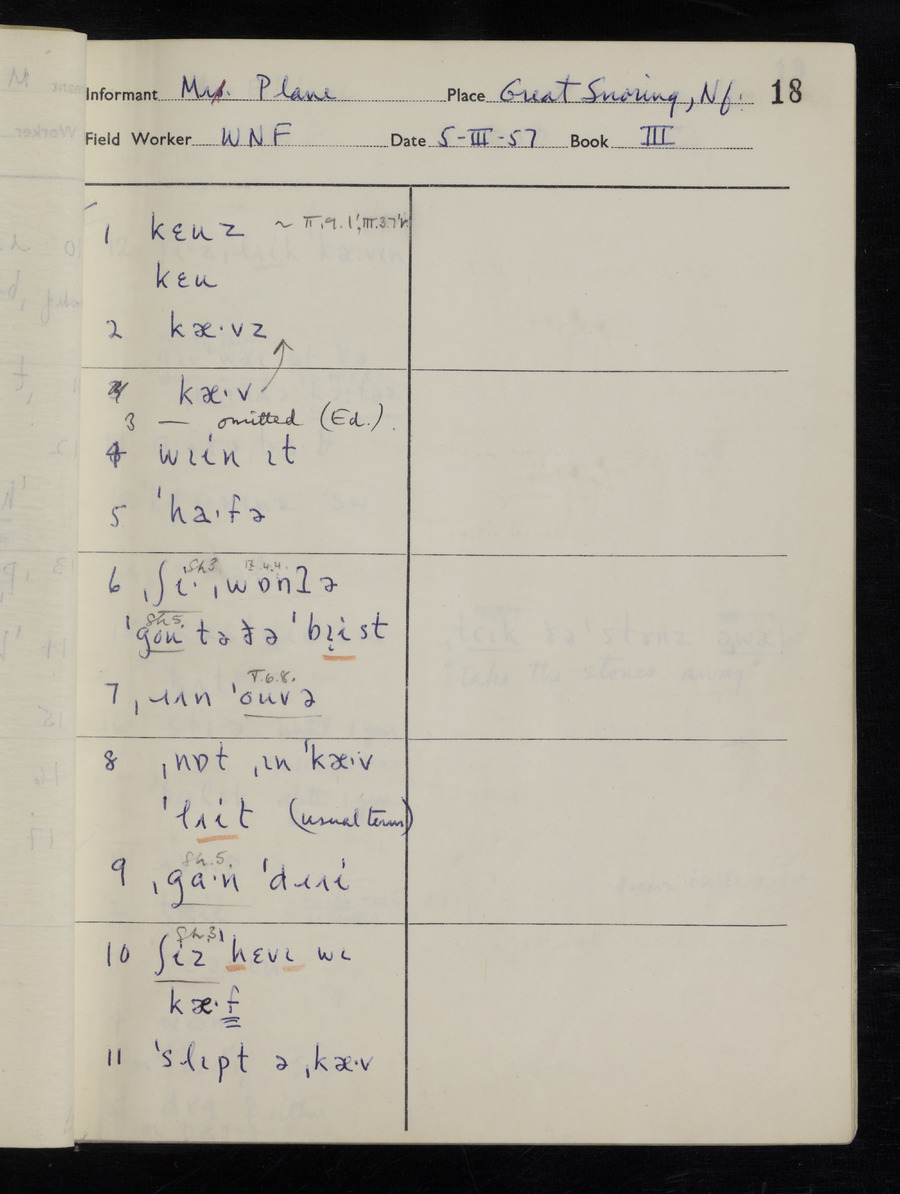 Informant Mr. Plane Place Great Snoring, Nf. 18
Field Worker WNF Date 5-III-57 Book III
1 kɛuz ~ II.9.1',III.3.7'
kɛu
2 kæ·vz
kæ·v
3 — omitted (Ed.).
4 wɹɩin ɩt
5 ˈha·fə
6 ˌʃi· Sh3 ˌwɒnɫə IX.4.4.
ˈgɒu Sh5. tə ðə ˈbɹ̩ist
7 ˌɹʌn ˈouvə V.6.8.
8 ˌnɒt ˌɩn ˈkæ·v
ˈlɹit (usual term)
9 ˌga·n Sh.5. ˈdɹɹi
10 ʃiz Sh3 ˈhɛvɩ wɩ
kæ·f
11 ˈslɩpt ə ˌkæ·v